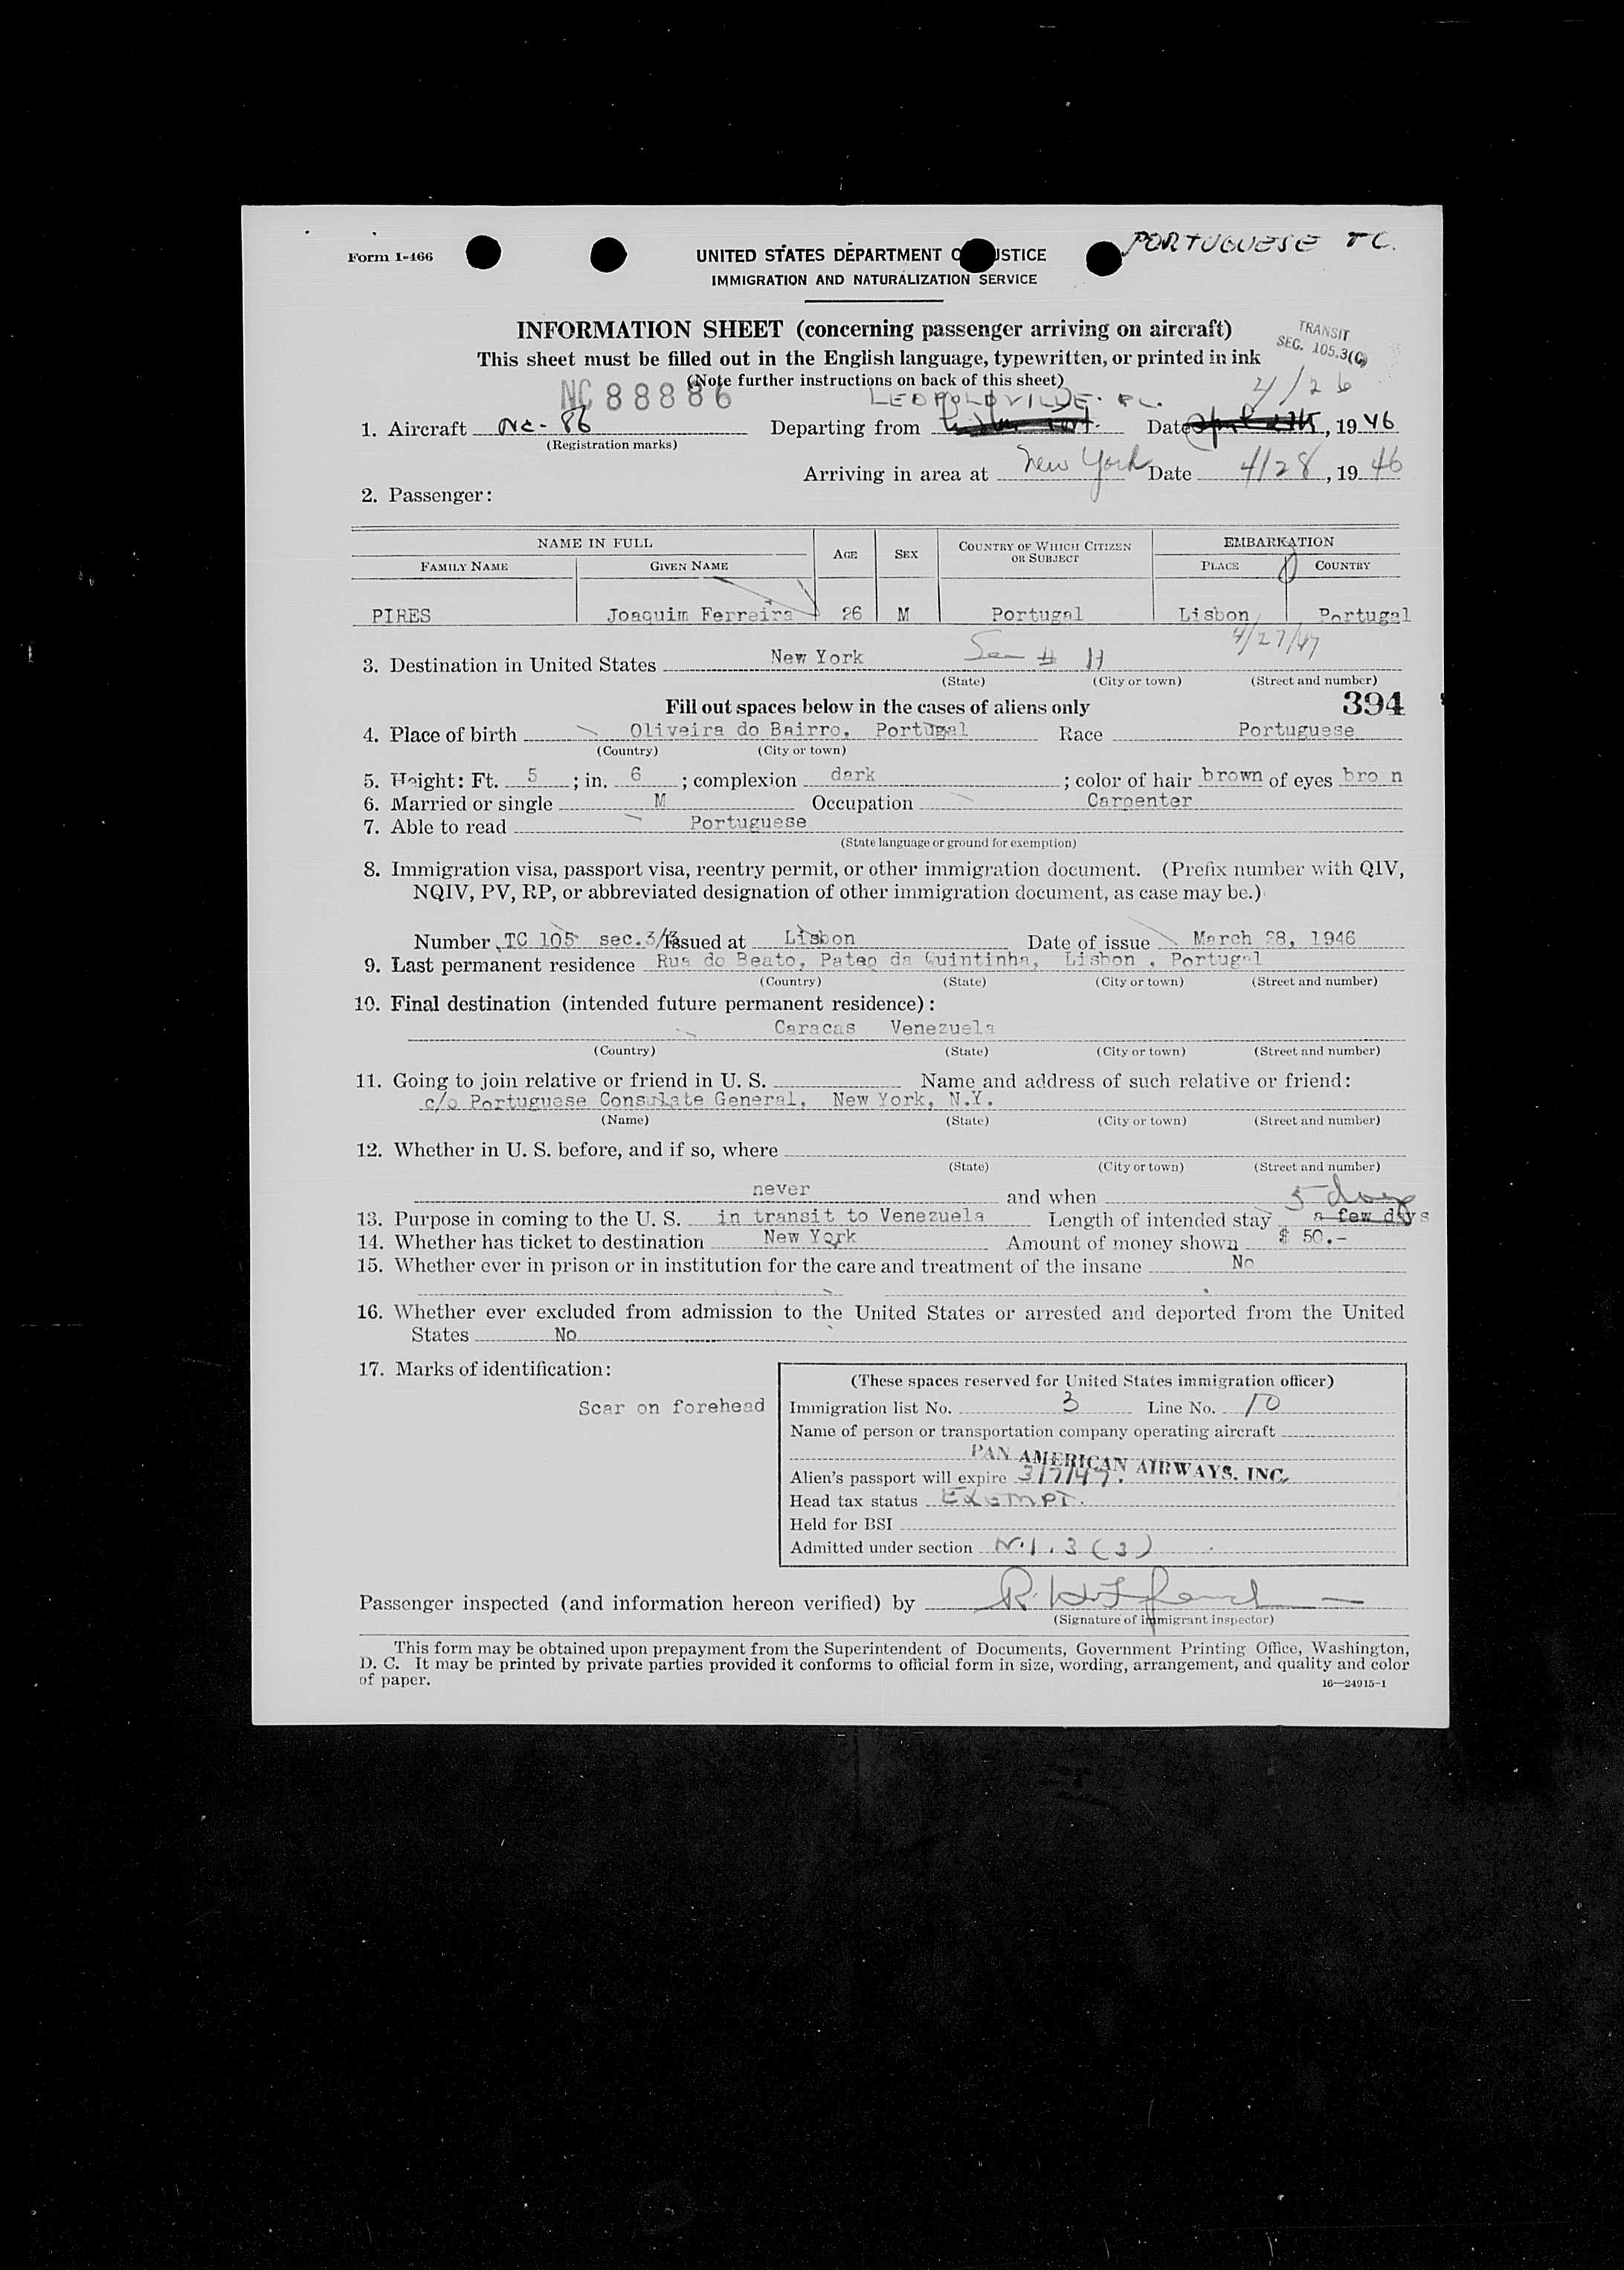 PORTUGUESE TC.
Form I-466
UNITED STATES DEPARTMENT O JUSTICE
IMMIGRATION AND NATURALIZATION SERVICE
INFORMATION SHEET (concerning passenger arriving on aircraft)
TRANSIT
SEC. 105.3(C)
This sheet must be filled out in the English language, typewritten, or printed in ink
(Note further instructions on back of this sheet)
NC 88886
LEOPOLDVILLE.
4/26
1. Aircraft NC-86 Departing from Date , 1946
(Registration marks)
Arriving in area at New York Date 4/28, 1946
2. Passenger:
NAME IN FULL AGE SEX COUNTRY OF WHICH CITIZEN OR SUBJECT EMBARKATION
FAMILY NAME GIVEN NAME PLACE COUNTRY
PIRES Joaquim Ferreira 26 M Portugal Lisbon Portugal
4/27/47
3. Destination in United States New York
(State) (City or town) (Street and number)
Fill out spaces below in the cases of aliens only 394
4. Place of birth Oliveira do Bairro, Portugal Race Portuguese
(Country) (City or town)
5. Height: Ft. 5 ; in. 6 ; complexion dark ; color of hair brown of eyes bro n
6. Married or single M Occupation Carpenter
7. Able to read Portuguese
(State language or ground for exemption)
8. Immigration visa, passport visa, reentry permit, or other immigration document. (Prefix number with QIV,
NQIV, PV, RP, or abbreviated designation of other immigration document, as case may be.)
Number TC 105 sec.3/ Issued at Lisbon Date of issue March 28, 1946
9. Last permanent residence Rua do Beato, Pateo da Quintinha, Lisbon , Portugal
(Country) (State) (City or town) (Street and number)
10. Final destination (intended future permanent residence):
Caracas Venezuela
(Country) (State) (City or town) (Street and number)
11. Going to join relative or friend in U. S. Name and address of such relative or friend:
c/o Portuguese Consulate General, New York, N.Y.
(Name) (State) (City or town) (Street and number)
12. Whether in U. S. before, and if so, where
(State) (City or town) (Street and number)
never and when
5 days
13. Purpose in coming to the U. S. in transit to Venezuela Length of intended stay a few days
14. Whether has ticket to destination New York Amount of money shown $ 50.-
15. Whether ever in prison or in institution for the care and treatment of the insane No
16. Whether ever excluded from admission to the United States or arrested and deported from the United
States No
17. Marks of identification:
Scar on forehead
(These spaces reserved for United States immigration officer)
Immigration list No. 3 Line No. 10
Name of person or transportation company operating aircraft
PAN AMERICAN AIRWAYS. INC.
Alien's passport will expire 3/7/47.
Head tax status EXEMPT.
Held for BSI
Admitted under section
Passenger inspected (and information hereon verified) by
(Signature of immigrant inspector)
This form may be obtained upon prepayment from the Superintendent of Documents, Government Printing Office, Washington,
D. C. It may be printed by private parties provided it conforms to official form in size, wording, arrangement, and quality and color
of paper.
16—24915-1